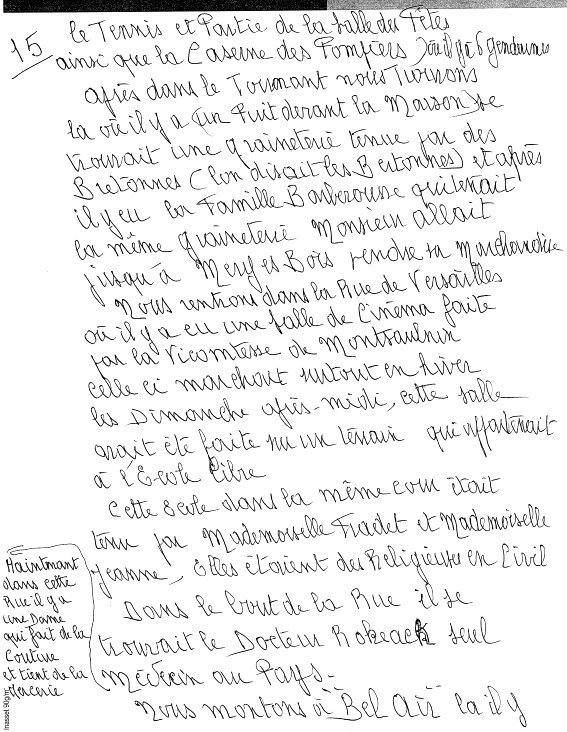 15
le Tennis et Partie de la Salle des Fêtes
ainsi que la Caserne des Pompiers (où il y a 6 gendarmes
après dans le Tournant nous Trouvons
la où il y a (un Puit devant la Maison) se
trouvait une graineterie tenue par des
Bretonnes (l'on disait les Bertonnes) et après
il y eu la Famille Barberousse qui tenait
la même graineterie Monsieur allait
jusqu'à Mery es Bois vendre sa Marchandise
Nous rentrons dans la Rue de Versailles
où il y a eu une Salle de Cinéma faite
par la Vicomtesse de Montsaulnin
celle ci marchait surtout en hiver
les Dimanche après-midi, cette salle
avait été faite sur un terrain qui appartenait
à l'Ecole Libre
Cette Ecole dans la même cour était
tenu par Mademoiselle Fradet et Mademoiselle
Jeanne, Elles étaient des Religieuses en Civil
Dans le bout de la Rue il se
trouvait le Docteur seul
Médecin au Pays.
Nous montons à "Bel Air" la il y
Maintenant
dans cette
Rue il y a
une Dame
qui fait de la
Couture
et tient de la
Mercerie